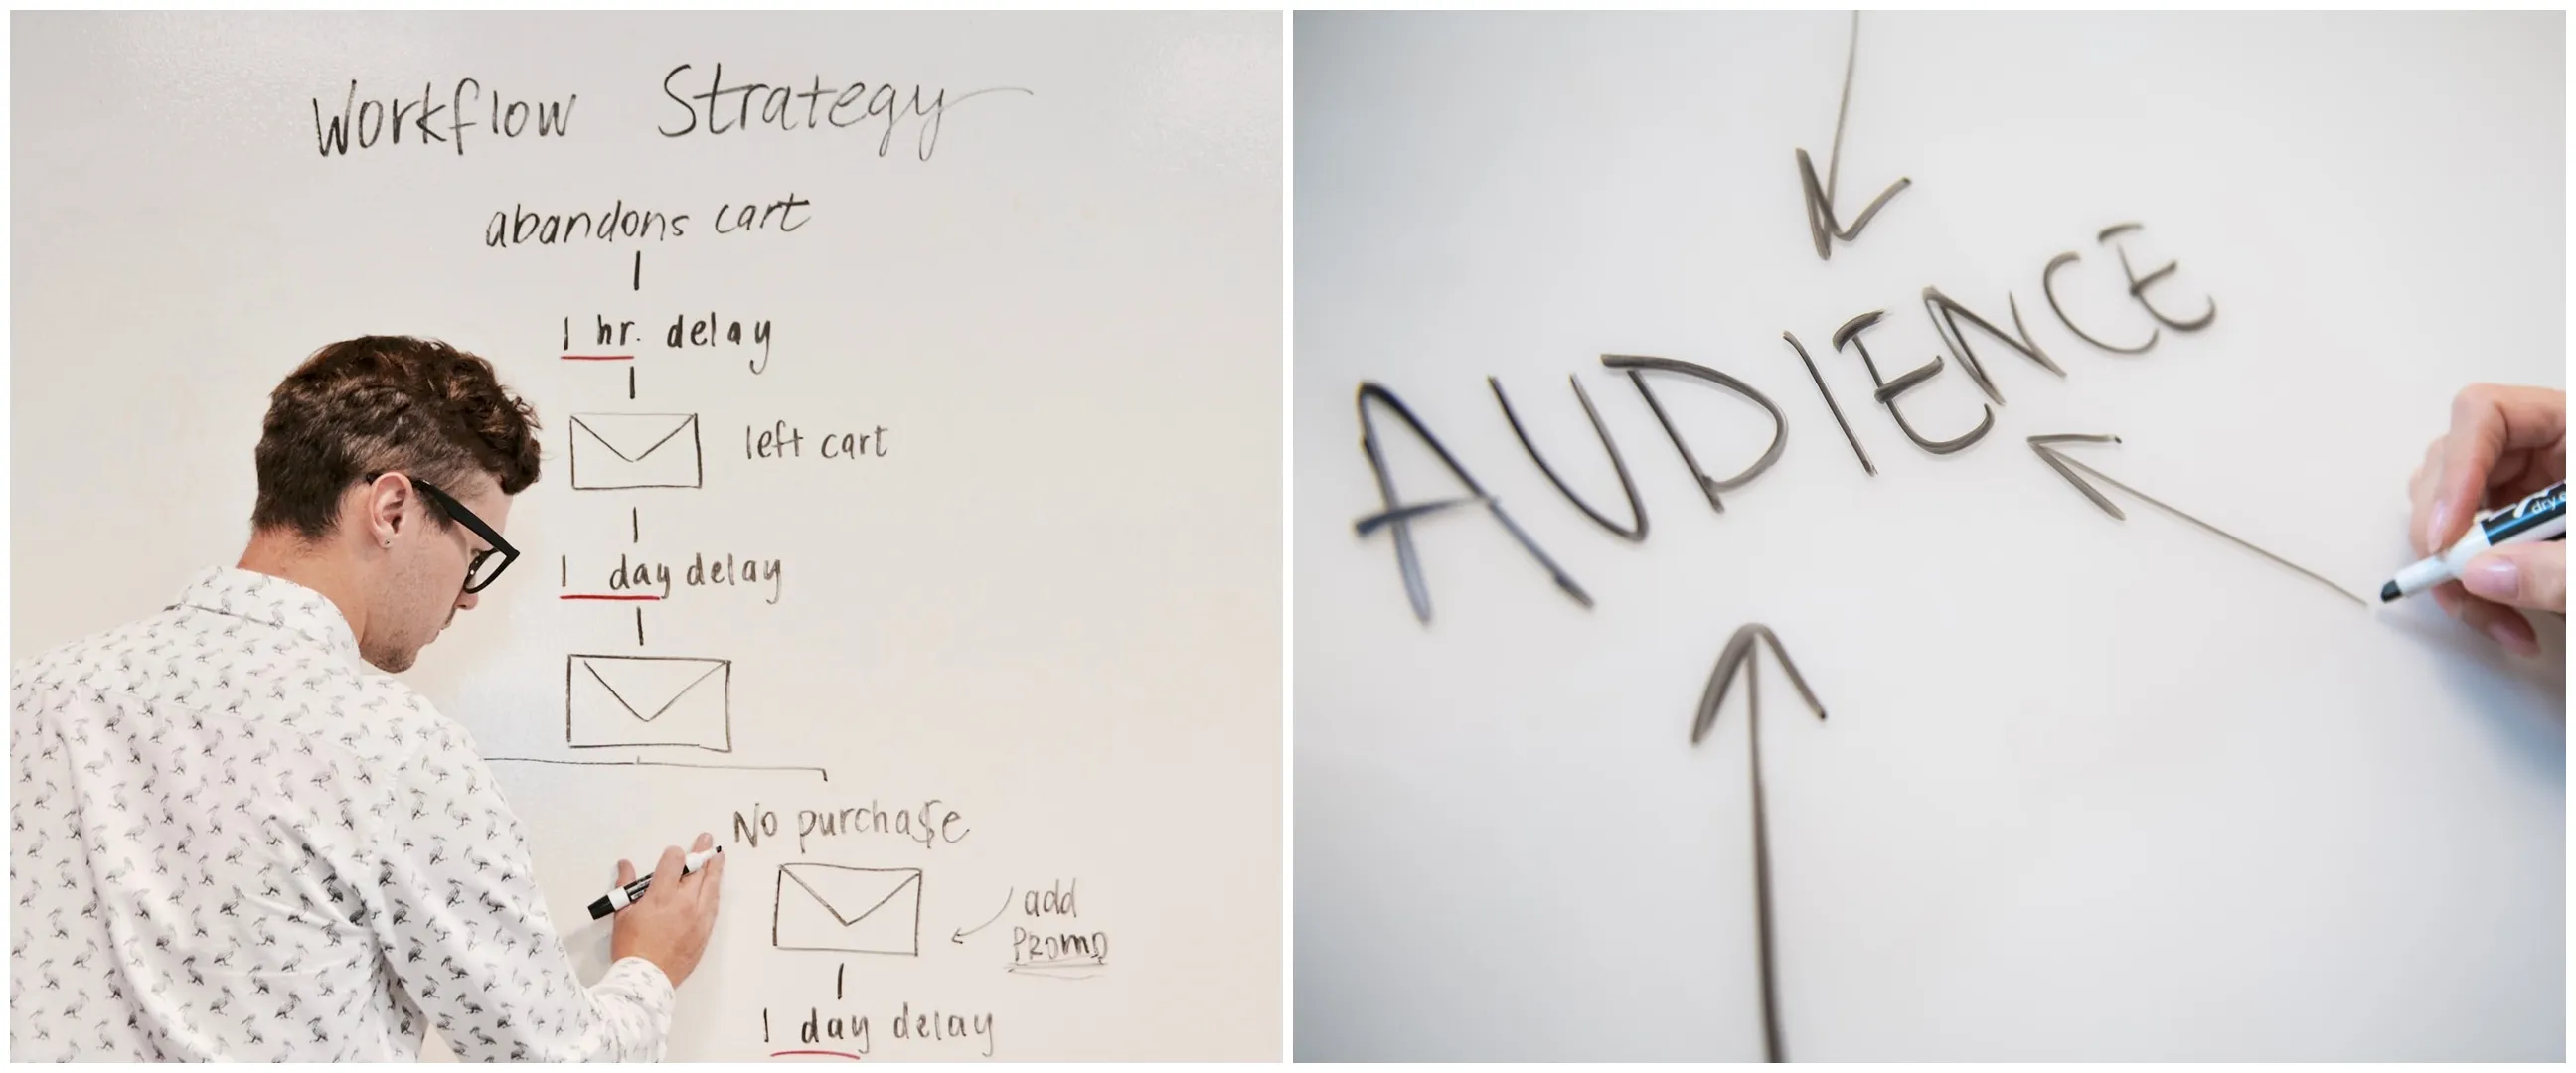 Workflow Strategy
abandons cart
1 hr. delay
left cart
1 day delay
No purchase
add
PROMO
1 day delay
AUDIENCE
dry